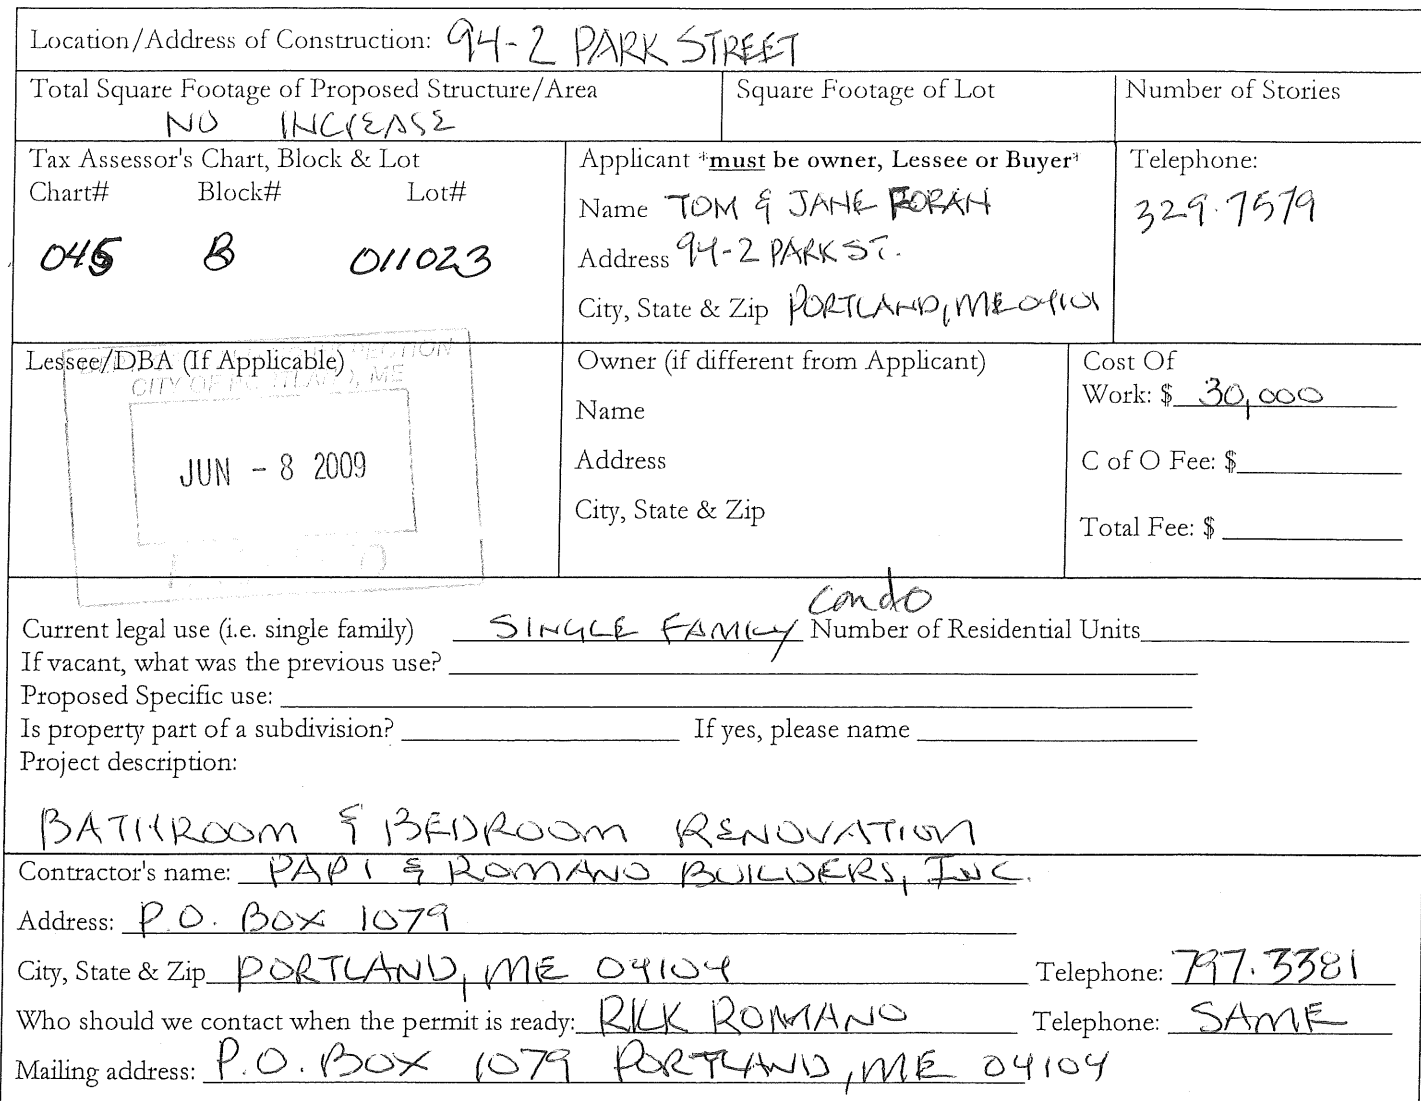 Location/Address of Construction: 94-2 PARK STREET
Total Square Footage of Proposed Structure/Area
NO INCREASE
Square Footage of Lot
Number of Stories
Tax Assessor's Chart, Block & Lot
Chart# Block# Lot#
045 B 011023
Applicant *must be owner, Lessee or Buyer*
Name TOM & JANE FORAN
Address 94-2 PARK ST.
City, State & Zip PORTLAND, ME 04101
Telephone:
329.7579
Lessee/DBA (If Applicable)
CITY OF PORTLAND, ME
JUN - 8 2009
Owner (if different from Applicant)
Name
Address
City, State & Zip
Cost Of
Work: $ 30,000
C of O Fee: $
Total Fee: $
condo
Current legal use (i.e. single family) SINGLE FAMILY Number of Residential Units
If vacant, what was the previous use?
Proposed Specific use:
Is property part of a subdivision? If yes, please name
Project description:
BATHROOM & BEDROOM RENOVATION
Contractor's name: PAPI & ROMANO BUILDERS, INC.
Address: P.O. BOX 1079
City, State & Zip PORTLAND, ME 04104 Telephone: 797.3381
Who should we contact when the permit is ready: RICK ROMANO Telephone: SAME
Mailing address: P.O. BOX 1079 PORTLAND, ME 04104